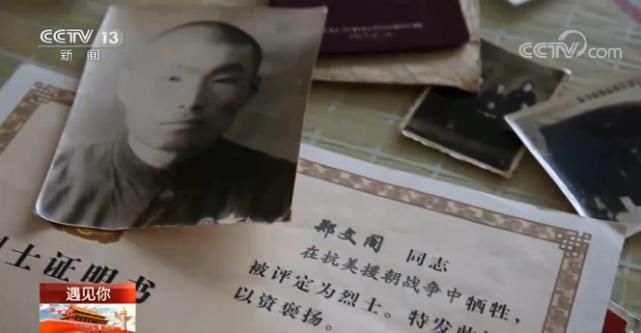 CCTV 13
新闻
CCTV.com
士证明书
文阁 同志
在抗美援朝战争中牺牲，
被评定为烈士。特发
以资褒扬。
遇见你